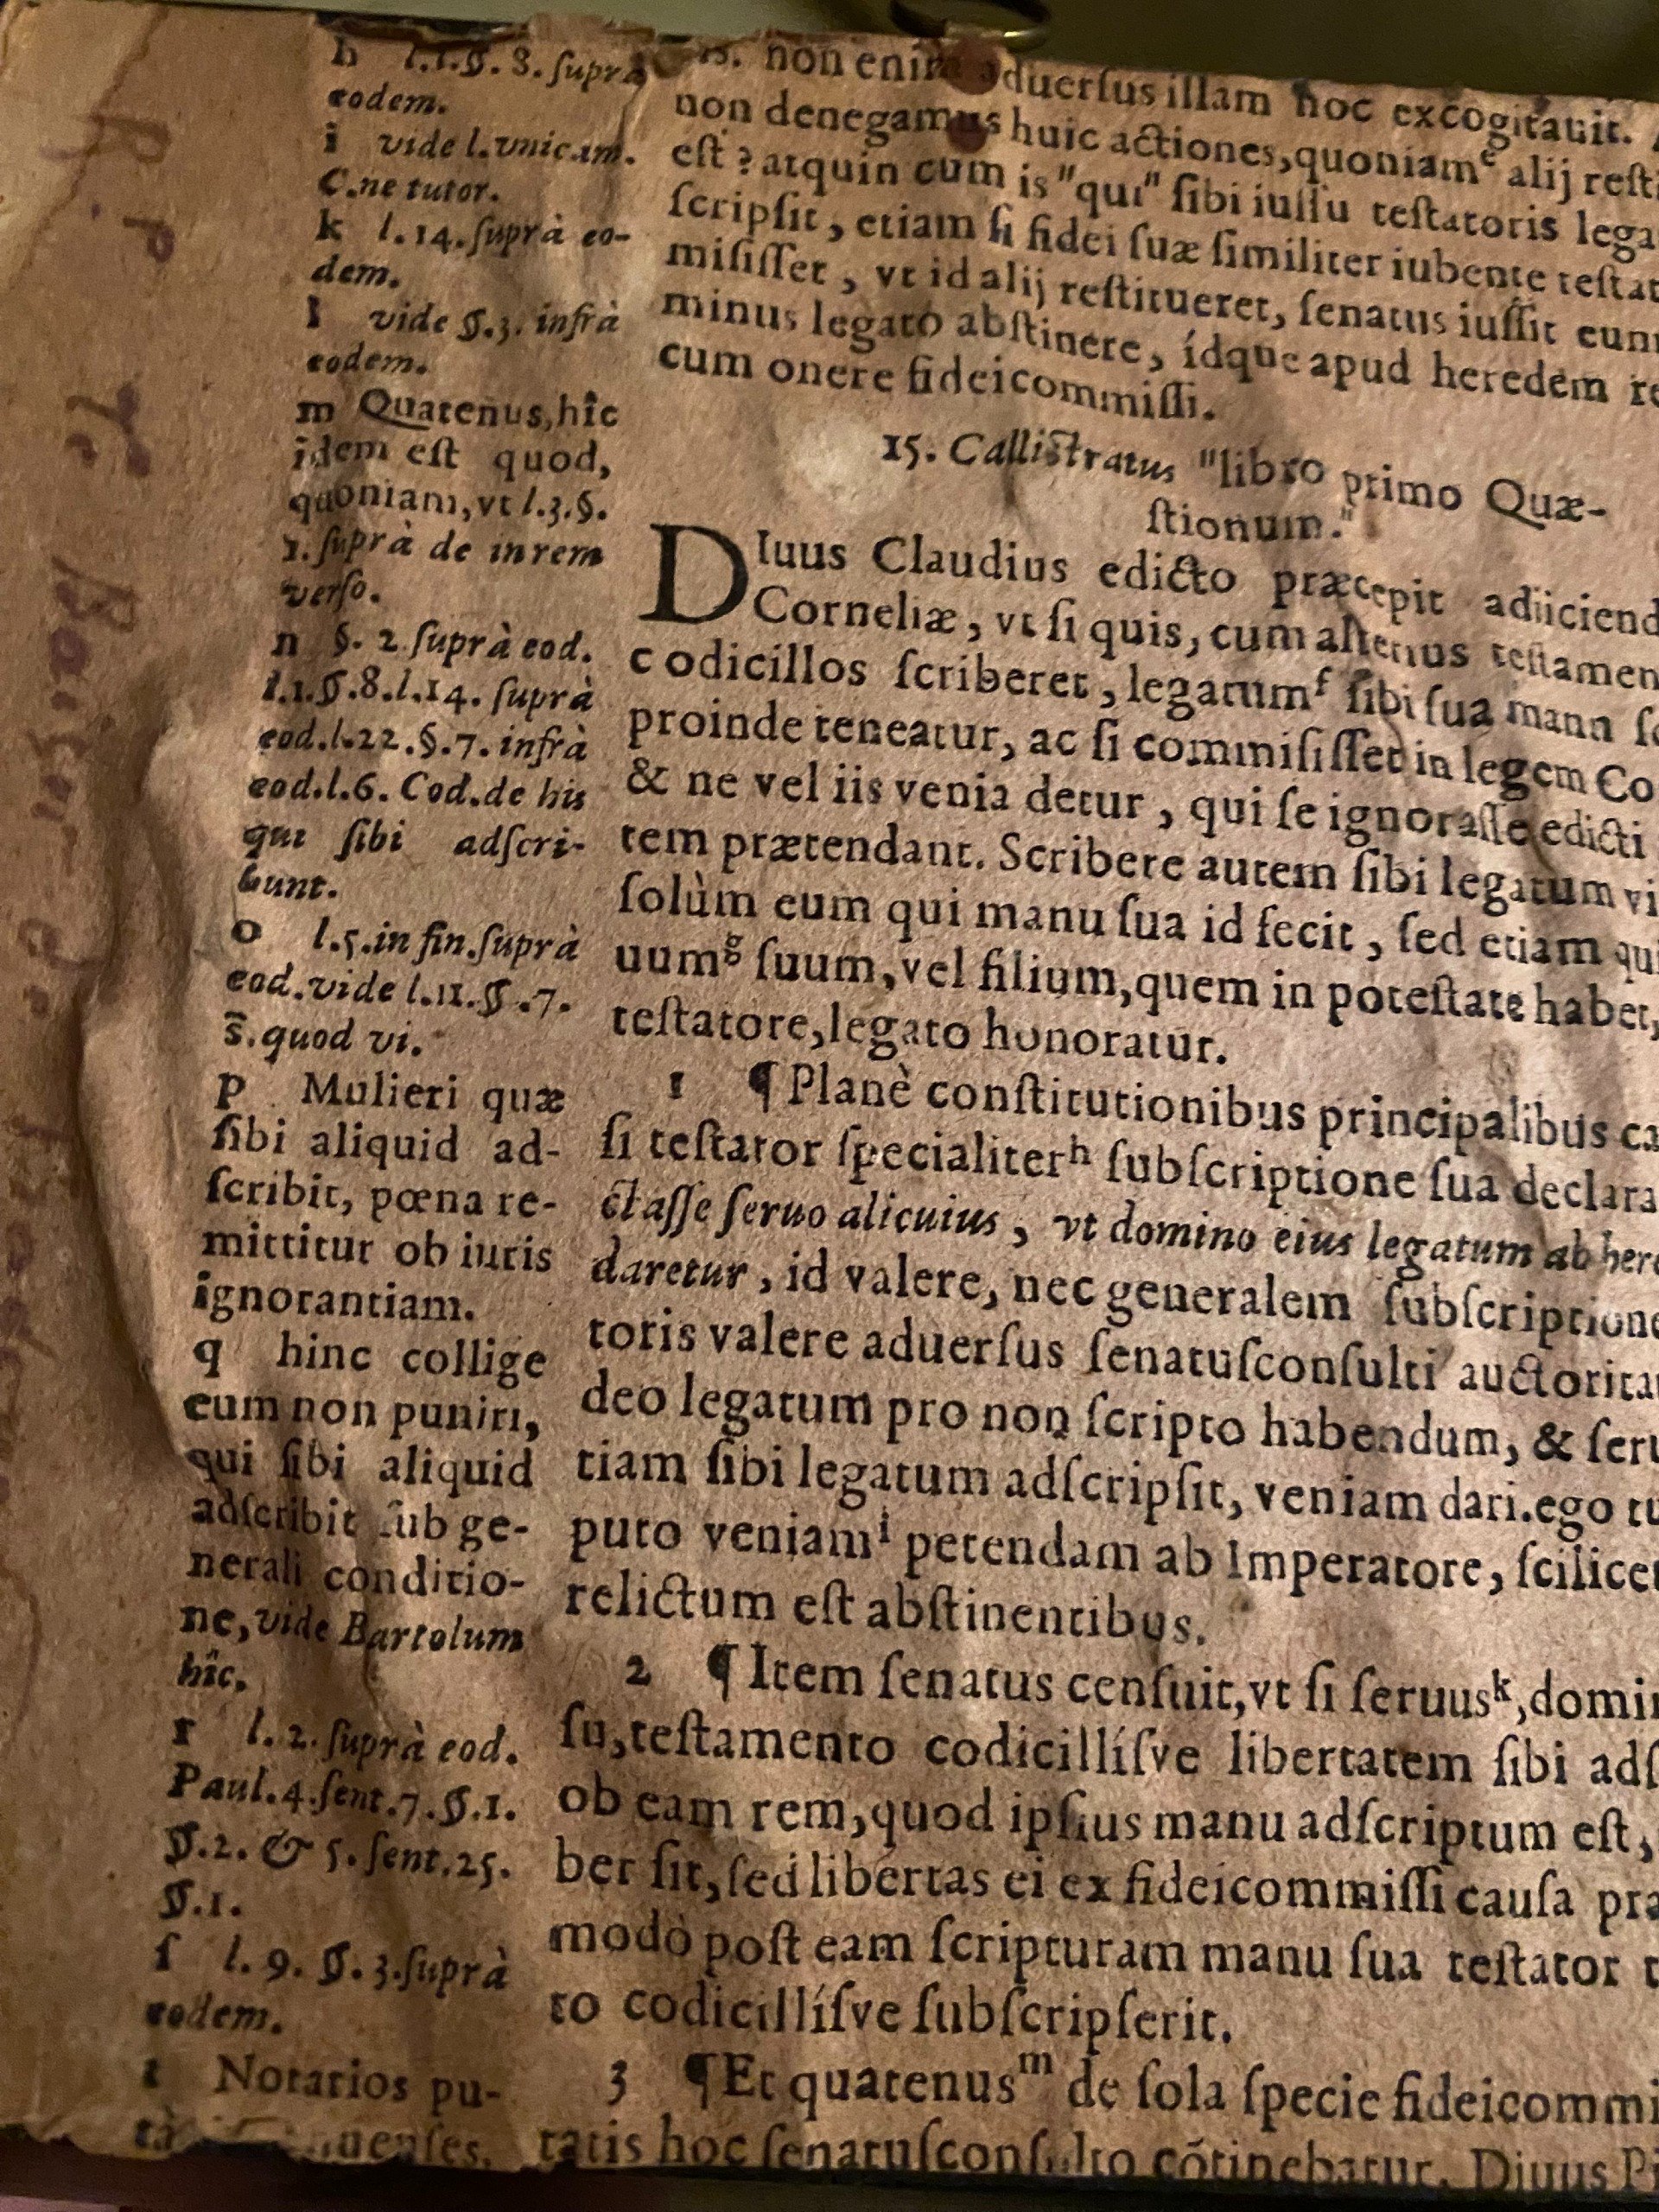 h l.1.§.8.ſuprà
eodem.
i vide l.vnicam.
C.ne tutor.
k l.14.ſuprà eo-
dem.
l vide §.3. infrà
eodem.
m Quatenus,hîc
idem eſt quod,
quoniam,vt l.3.§.
1.ſuprà de in rem
verſo.
n §. 2 ſuprà eod.
l.1.§.8.l.14. ſuprà
eod.l.22.§.7.infrà
eod.l.6. Cod.de his
qui ſibi adſcri-
bunt.
o l.5.in fin.ſuprà
eod.vide l.11.§.7.
s̄.quod vi.
p Mulieri quæ
ſibi aliquid ad-
ſcribit, pœna re-
mittitur ob iuris
ignorantiam.
q hinc collige
eum non puniri,
qui ſibi aliquid
adſcribit ſub ge-
nerali conditio-
ne,vide Bartolum
hîc.
r l. 2.ſuprà eod.
Paul.4.ſent.7.§.1.
§.2. & 5.ſent.25.
§.1.
ſ l. 9. §. 3.ſuprà
eodem.
t Notarios pu-
non enim aduerſus illam hoc excogitauit.
non denegamus huic actiones,quoniamᵉ alij reſti
eſt ? atquin cum is "qui" ſibi iuſſu teſtatoris lega
ſcripſit , etiam ſi fidei ſuæ ſimiliter iubente teſtat
miſiſſet , vt id alij reſtitueret, ſenatus iuſſit eum
minus legato abſtinere, ídque apud heredem re
cum onere fideicommiſſi.
15. Calliſtratus "libro primo Quæ-
ſtionum."
DIuus Claudius edicto præcepit adiiciend
Corneliæ , vt ſi quis, cum alterius teſtamen
codicillos ſcriberet , legatumᶠ ſibi ſua manu ſc
proinde teneatur, ac ſi commiſiſſet in legem Co
& ne vel iis venia detur , qui ſe ignoraſſe edicti
tem prætendant. Scribere autem ſibi legatum vi
ſolùm eum qui manu ſua id fecit , ſed etiam qui
uumᵍ ſuum,vel filium,quem in poteſtate habet,
teſtatore,legato honoratur.
1 ¶ Planè conſtitutionibus principalibus ca
ſi teſtator ſpecialiterʰ ſubſcriptione ſua declara
ctaſſe ſeruo alicuius , vt domino eius legatum ab here
daretur , id valere, nec generalem ſubſcriptione
toris valere aduerſus ſenatuſconſulti auctorita
deo legatum pro non ſcripto habendum, & ſeru
tiam ſibi legatum adſcripſit, veniam dari.ego tu
puto veniamⁱ petendam ab Imperatore, ſcilicet
relictum eſt abſtinentibus.
2 ¶ Item ſenatus cenſuit,vt ſi ſeruusᵏ,domin
ſu,teſtamento codicillíſve libertatem ſibi adſ
ob eam rem,quod ipſius manu adſcriptum eſt,
ber ſit,ſed libertas ei ex fideicommiſſi cauſa præ
modò poſt eam ſcripturam manu ſua teſtator t
to codicillíſve ſubſcripſerit.
3 ¶ Et quatenusᵐ de ſola ſpecie fideicommi
tatis hoc ſenatuſconſulto cōtinebatur, Diuus Pi